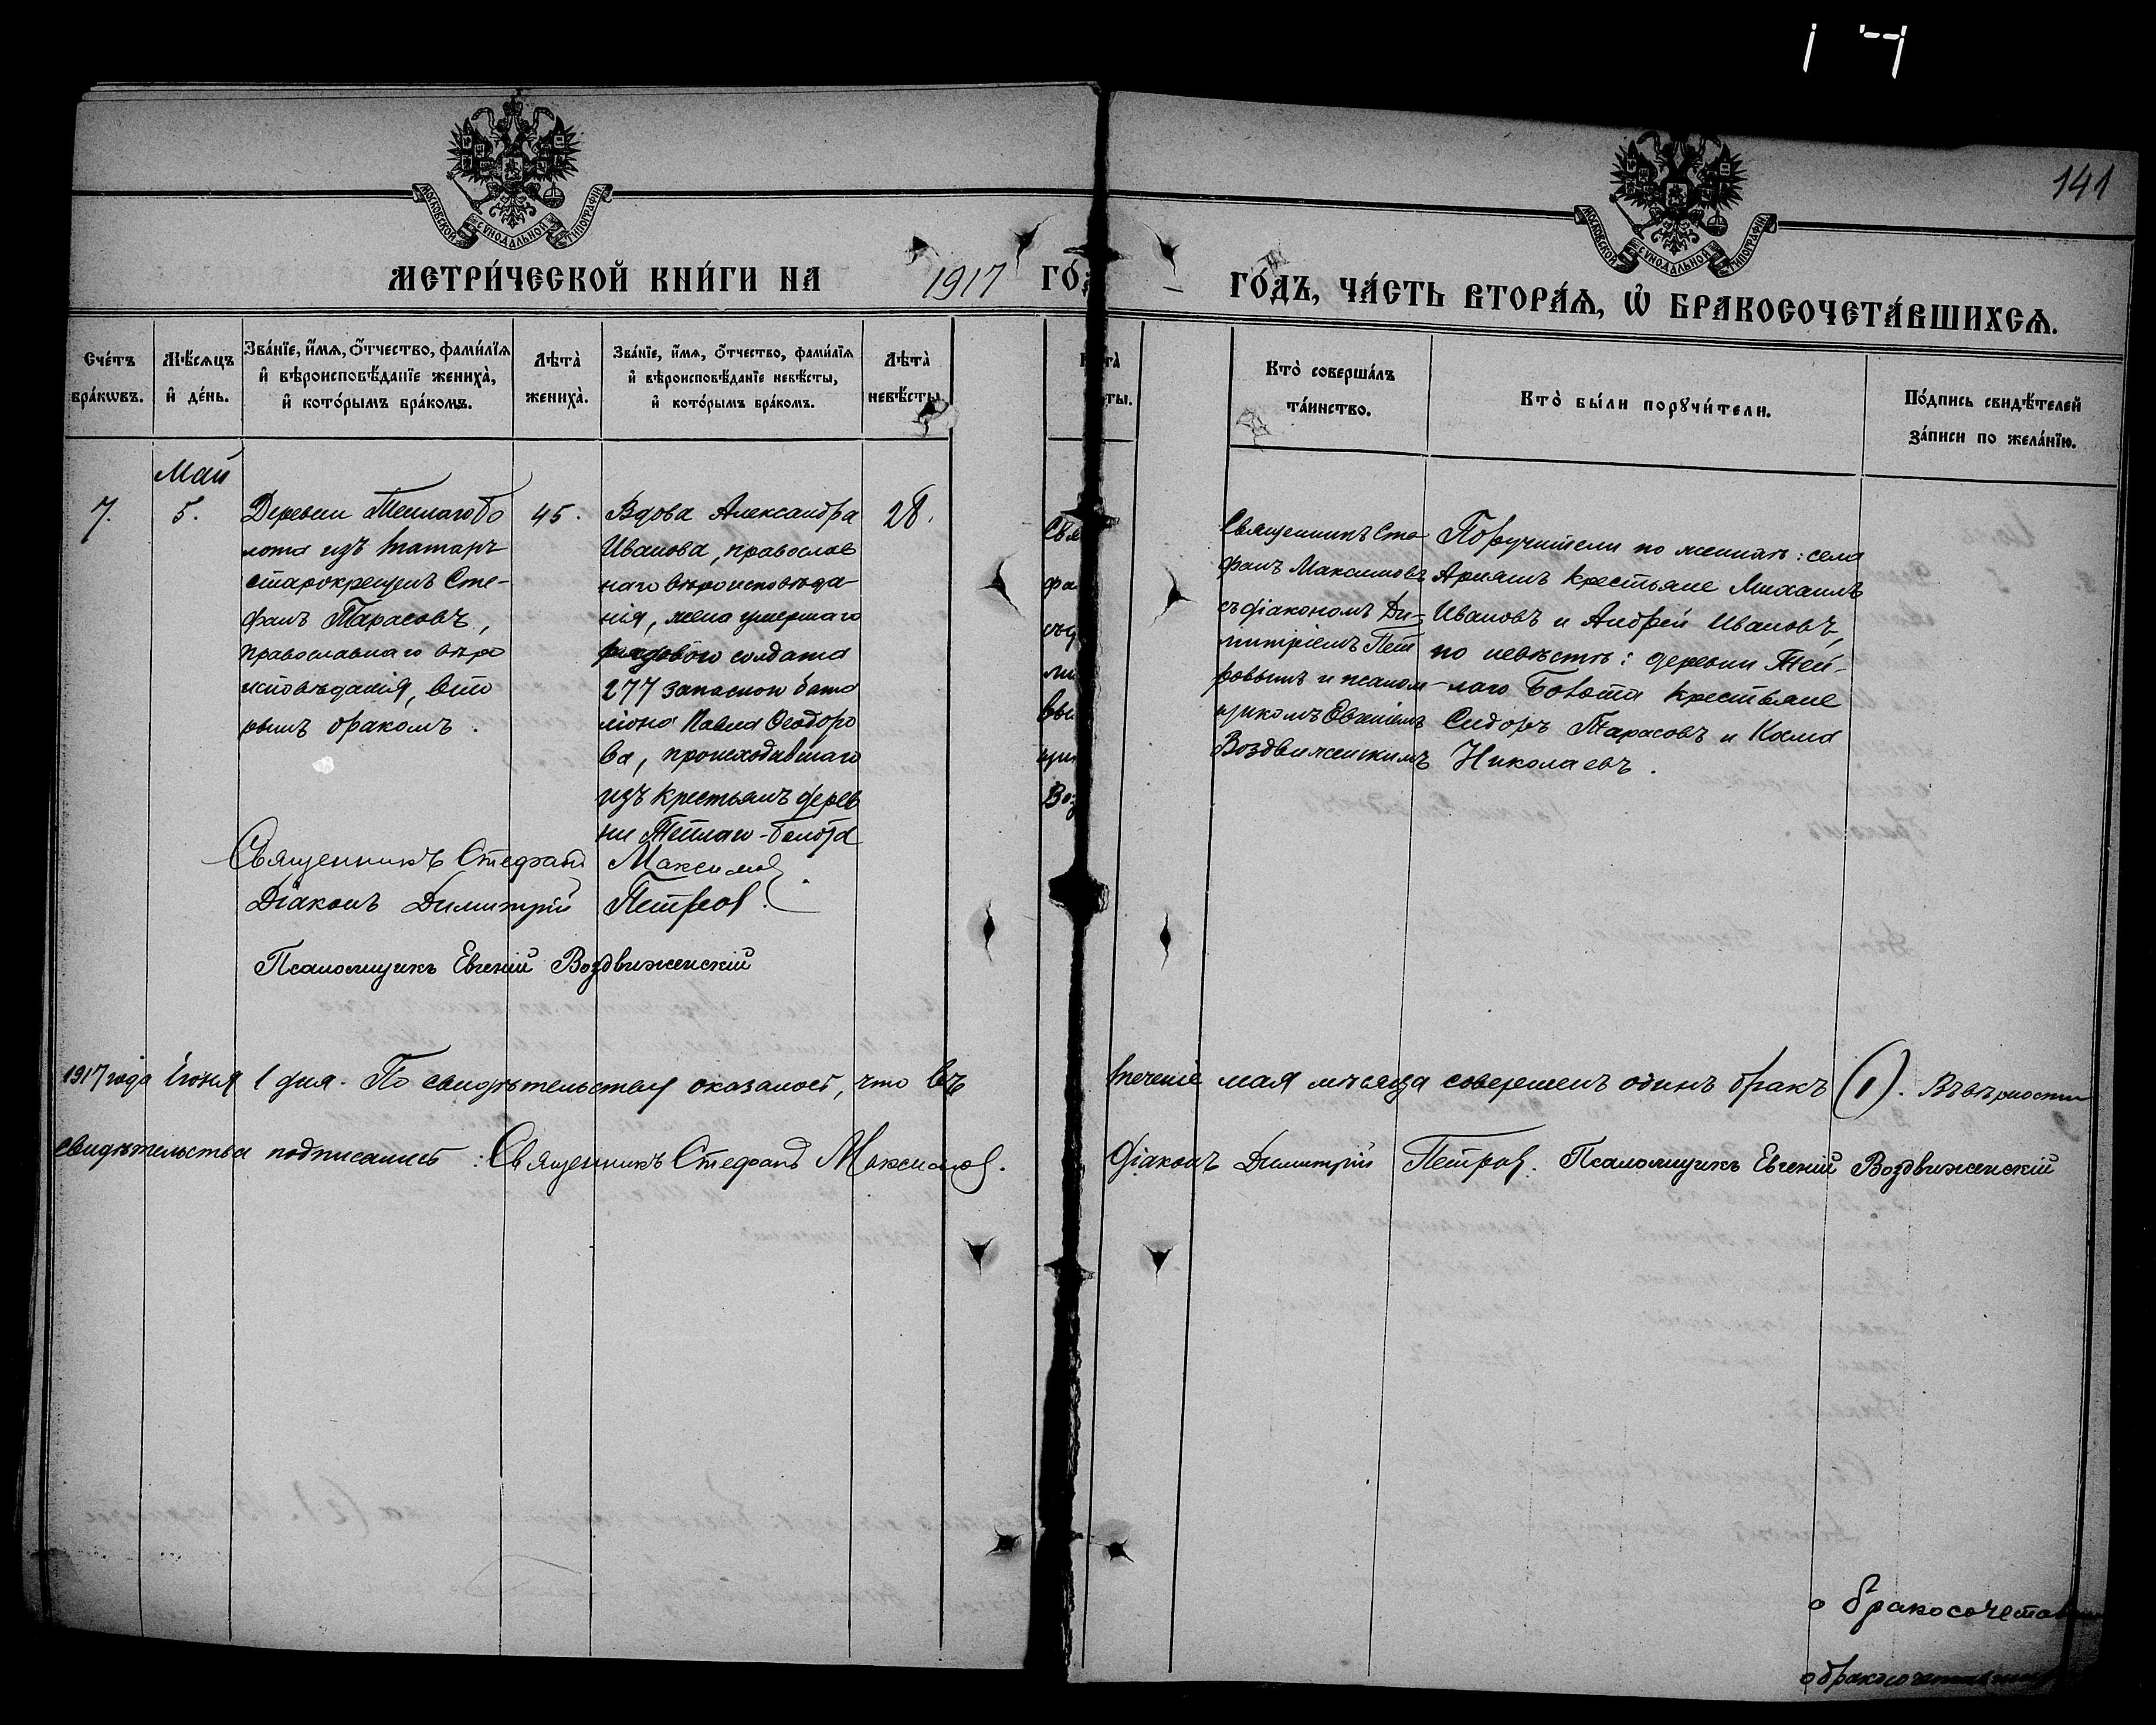 141
МОСКОВСКОЙ СѴНОДАЛЬНОЙ ТИПОГРАФІИ
МОСКОВСКОЙ СѴНОДАЛЬНОЙ ТИПОГРАФІИ
МЕТРИ́ЧЕСКОЙ КНИ́ГИ НА 1917 ГО́Д
ГО́ДЪ, ЧА́СТЬ ВТОРА́Ѧ, Ѽ БРАКОСОЧЕТА́ВШИХСѦ.
Сче́тъ бра́кѡвъ.
Мѣ́сѧцъ и҆ де́нь.
Зва́нїе, и҆́мѧ, ѻ҆́тчество, фами́лїѧ
и҆ вѣроисповѣ́данїе жениха̀,
и҆ кото́рымъ бра́комъ.
Лѣта̀ жениха̀.
Зва́нїе, и҆́мѧ, ѻ҆́тчество, фами́лїѧ
и҆ вѣроисповѣ́данїе невѣ́сты,
и҆ кото́рымъ бра́комъ.
Лѣта̀ невѣ́сты.
Кто̀ соверша́лъ
та́инство.
Кто̀ бы́ли порꙋчи́тели.
По́дпись свидѣ́телей
за́писи по жела́нїю.
7.
Май
5.
Деревни Теплаго Бо
лота изъ татаръ
старокрещенъ Сте-
фанъ Тарасовъ,
православнаго вѣро
исповѣданія, вто
рымъ бракомъ.
45.
Вдова Александра
Иванова, православ
наго вѣроисповѣда-
нія, жена умершаго
рядового солдата
277 запаснои бата
ліона Павла Ѳеодоро
ва, происходившаго
изъ крестьянъ дерев
ни Теплаго-болота
28.
Священникъ Сте
фанъ Максимовъ
съ діакономъ Ди-
митріемъ Пет
ровымъ и псалом-
щикомъ Евгеніемъ
Воздвиженскимъ
Поручители по женихѣ: села
Арняшъ крестьяне Михаилъ
Ивановъ и Андрей Ивановъ,
по невѣстѣ: деревни Теп-
лаго Болота крестьяне
Сидоръ Тарасовъ и Косма
Николаевъ.
Священникъ Стефанъ Максимов.
Діаконъ Димитрій Петров.
Псаломщикъ Евгеній Воздвиженскій
1917 года Іюня 1 дня. По свидѣтельству оказалось, что въ теченіе мая мѣсяца совершенъ одинъ бракъ (1). Въ вѣрности
свидѣтельства подписались: Священникъ Стефанъ Максимов. Діаконъ Димитрій Петров. Псаломщикъ Евгеній Воздвиженскій
о бракосочетав